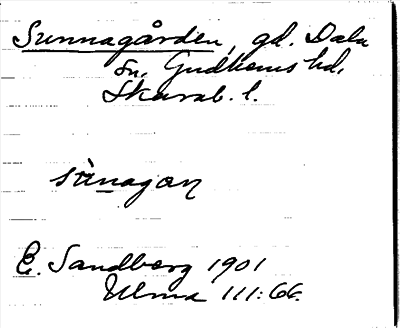 Sunnagården, gd. Dala
sn, Gudhems hd,
Skarab. l.
E. Sandberg 1901
Ulma 111:66.